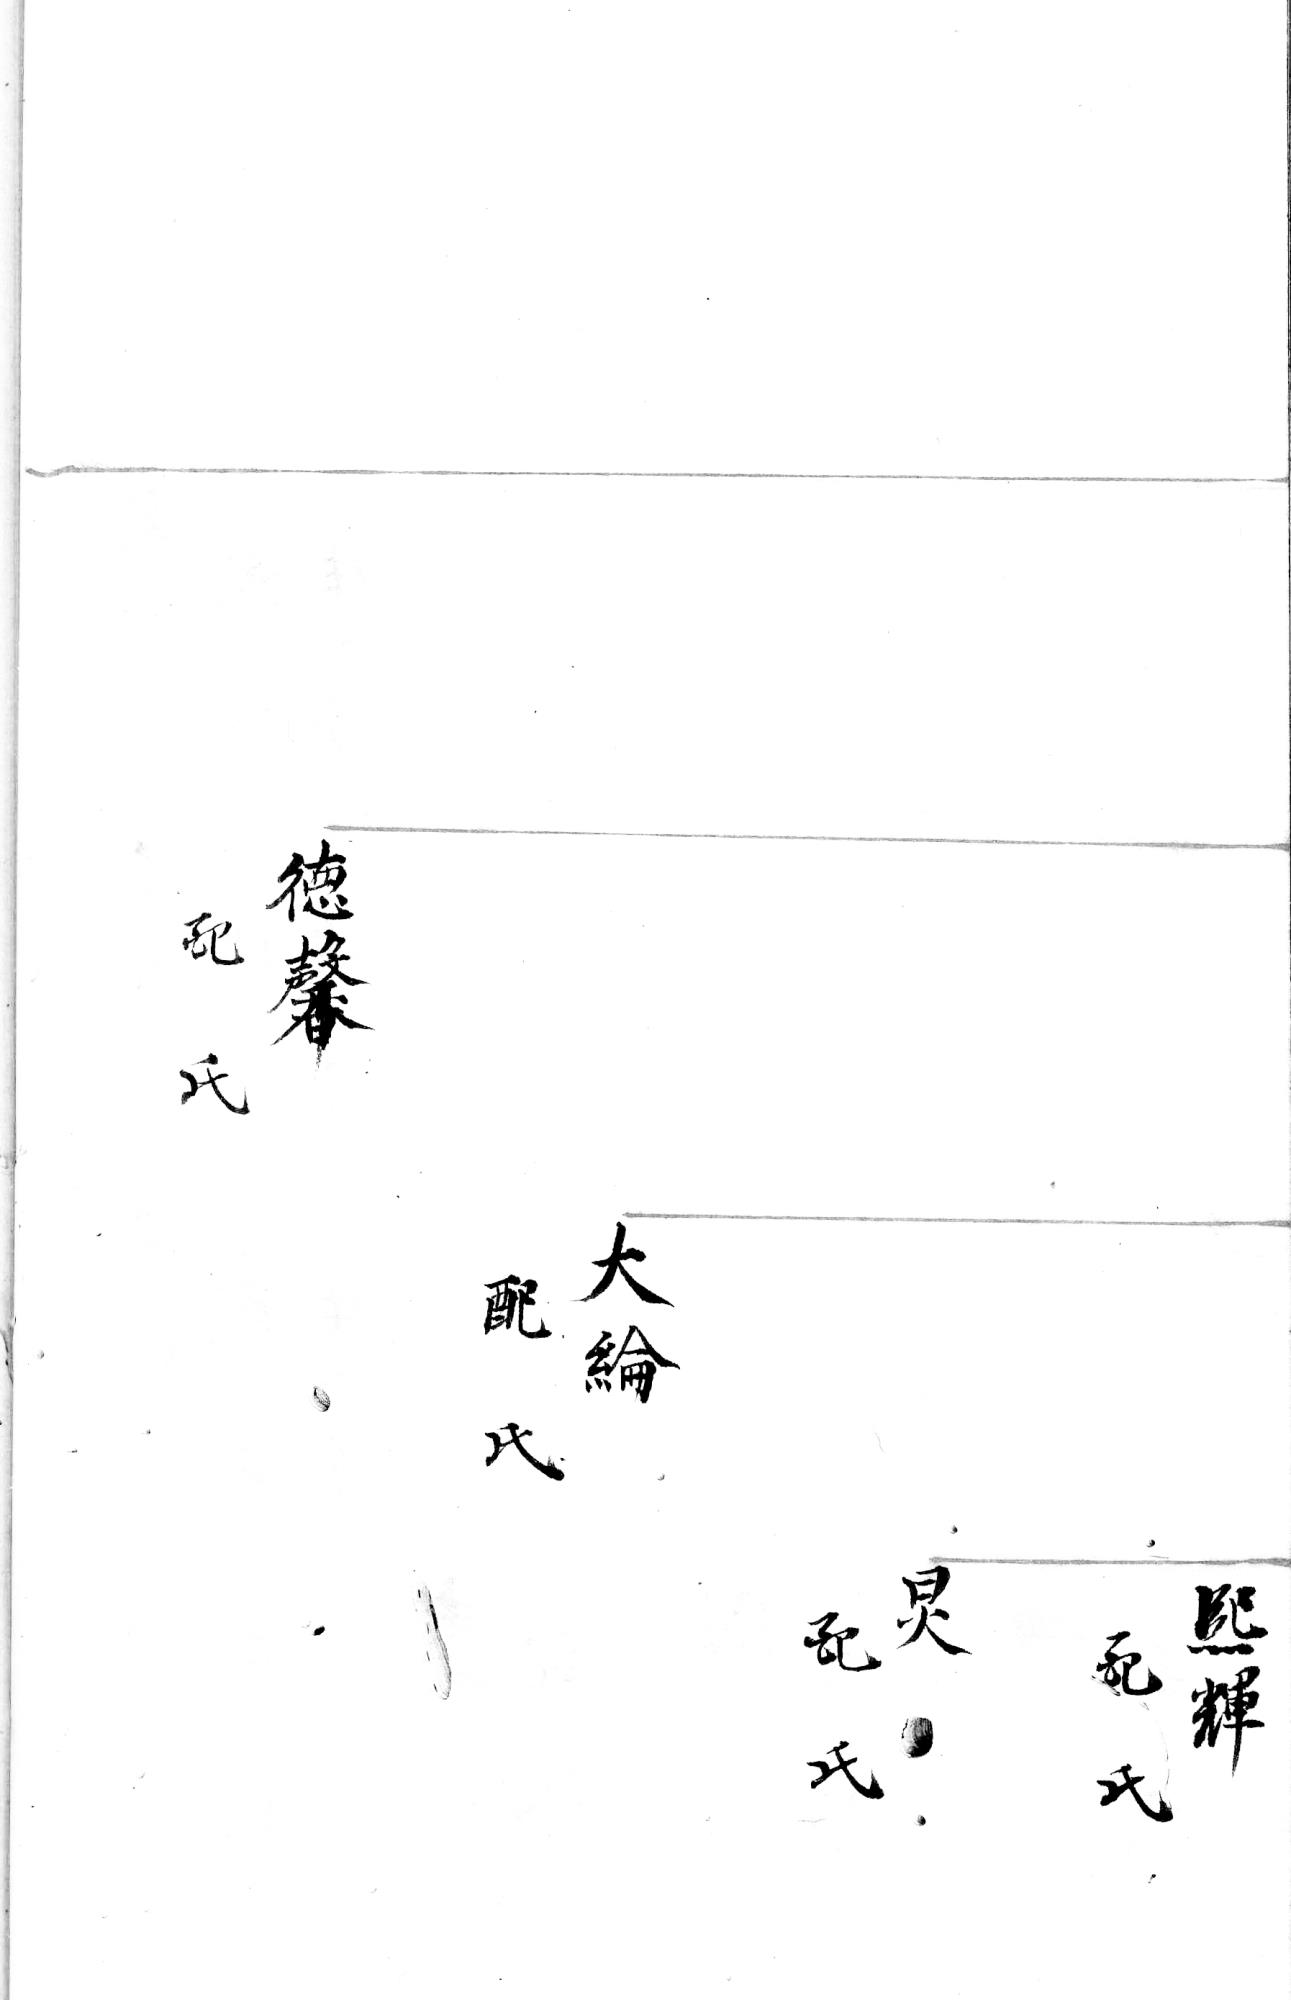 熙輝
配 氏
炅
配 氏
大綸
配 氏
德馨
配 氏